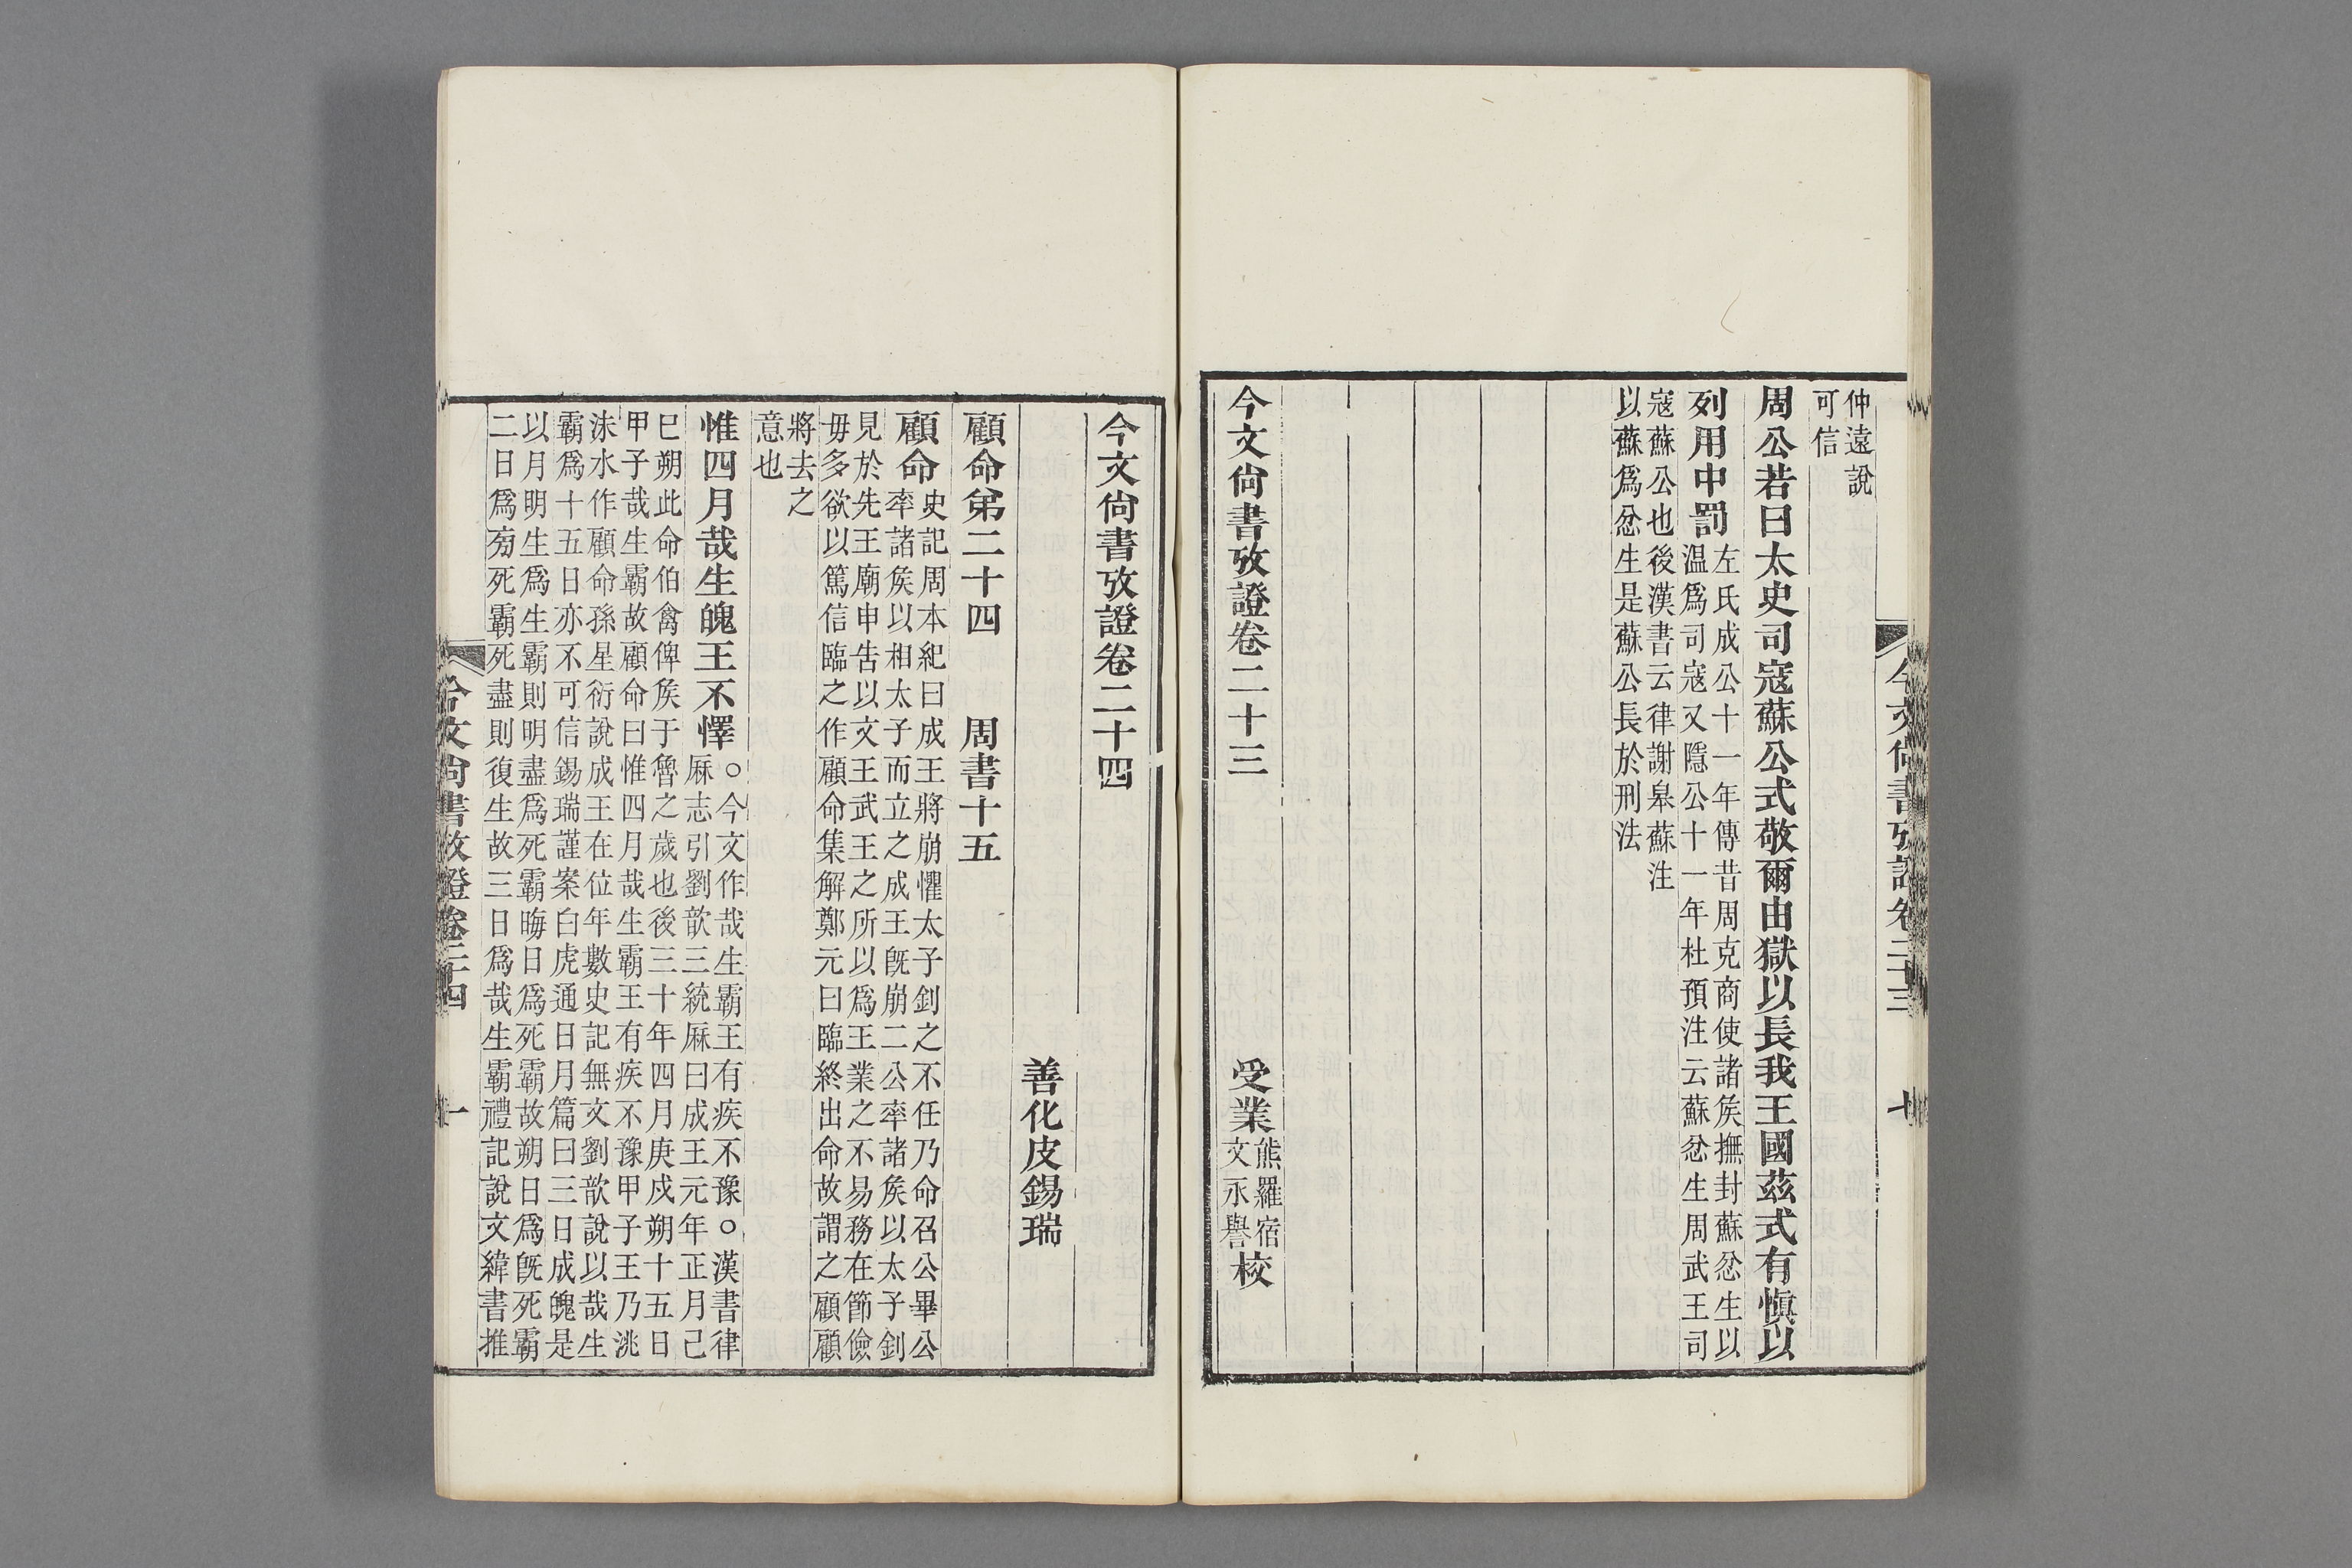 仲遠說
可信
周公若曰太史司寇蘇公式敬爾由獄以長我王國茲式有愼以
列用中罰
左氏成公十一年傳昔周克商使諸矦撫封蘇忿生以
温爲司寇又隱公十一年杜預注云蘇忿生周武王司
寇蘇公也後漢書云律謝皋蘇注
以蘇爲忿生是蘇公長於刑法
今文尙書攷證卷二十三
受業
熊羅宿
文永譽
校
今文尙書攷證卷二十三
七
今文尙書攷證卷二十四
善化皮錫瑞
顧命弟二十四
周書十五
顧命
史記周本紀曰成王將崩懼太子釗之不任乃命召公畢公
率諸矦以相太子而立之成王旣崩二公率諸矦以太子釗
見於先王廟申吿以文王武王之所以爲王業之不易務在節儉
毋多欲以篤信臨之作顧命集解鄭元曰臨終出命故謂之顧顧
將去之
意也
惟四月哉生魄王不懌
○今文作哉生霸王有疾不豫○漢書律
厤志引劉歆三統厤曰成王元年正月己
巳朔此命伯禽俾矦于魯之歲也後三十年四月庚戌朔十五日
甲子哉生霸故顧命曰惟四月哉生霸王有疾不豫甲子王乃洮
沬水作顧命孫星衍說成王在位年數史記無文劉歆說以哉生
霸爲十五日亦不可信錫瑞謹案白虎通日月篇曰三日成魄是
以月明生爲生霸則明盡爲死霸晦日爲死霸故朔日爲旣死霸
二日爲㫄死霸死盡則復生故三日爲哉生霸禮記說文緯書推
今文尙書攷證卷二十四
一